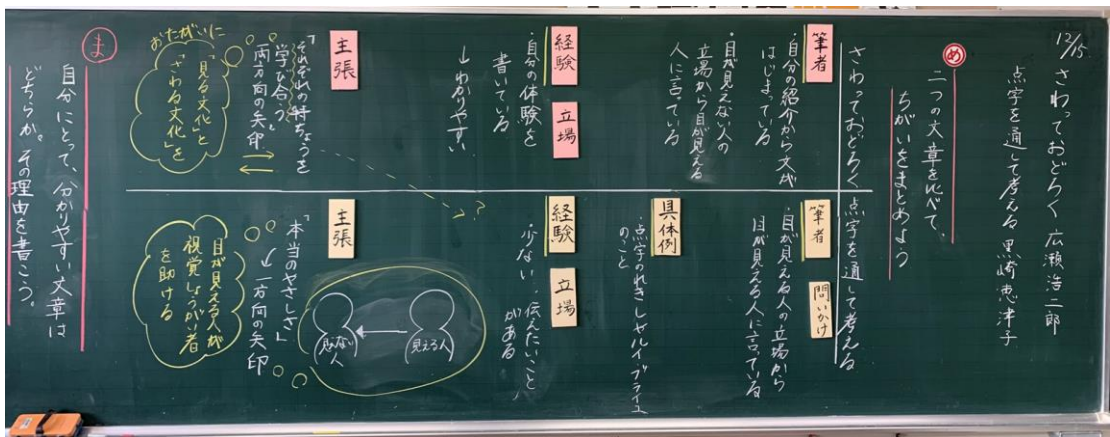 12/15
さわっておどろく 広瀬浩二郎
点字を通して考える 黒崎恵津子
め
二つの文章を比べて、
ちがいをまとめよう
さわっておどろく
筆者
・自分の紹介から文が
はじまっている
・目が見えない人の
立場から目が見える
人に言っている
経験
立場
・自分の体験を
書いている
↓わかりやすい
主張
「それぞれの特ちょうを
学び合う」
両方向の矢印
おたがいに
「見る文化」と
「さわる文化」を
点字を通して考える
筆者
問いかけ
・目が見える人の立場から
目が見える人に言っている
具体例
・点字のれきし やルイ ブライユ
のこと
?
経験
立場
・少ない
伝えたいこと
がある
主張
「本当のやさしさ」
↓一方向の矢印
見える人
見えない
人
目が見える人が
視覚しょうがい者
を助ける
ま
自分にとって、分かりやすい文章は
どちらか。その理由を書こう。